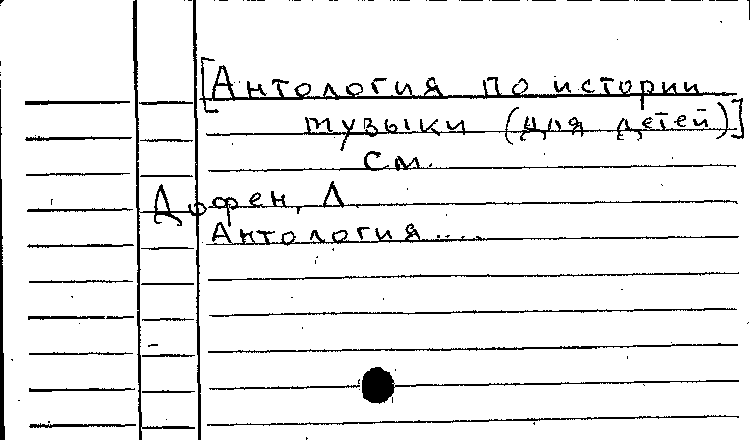 [Антология по истории
музыки (для детей)]
см.
Дофен, Л.
Антология....